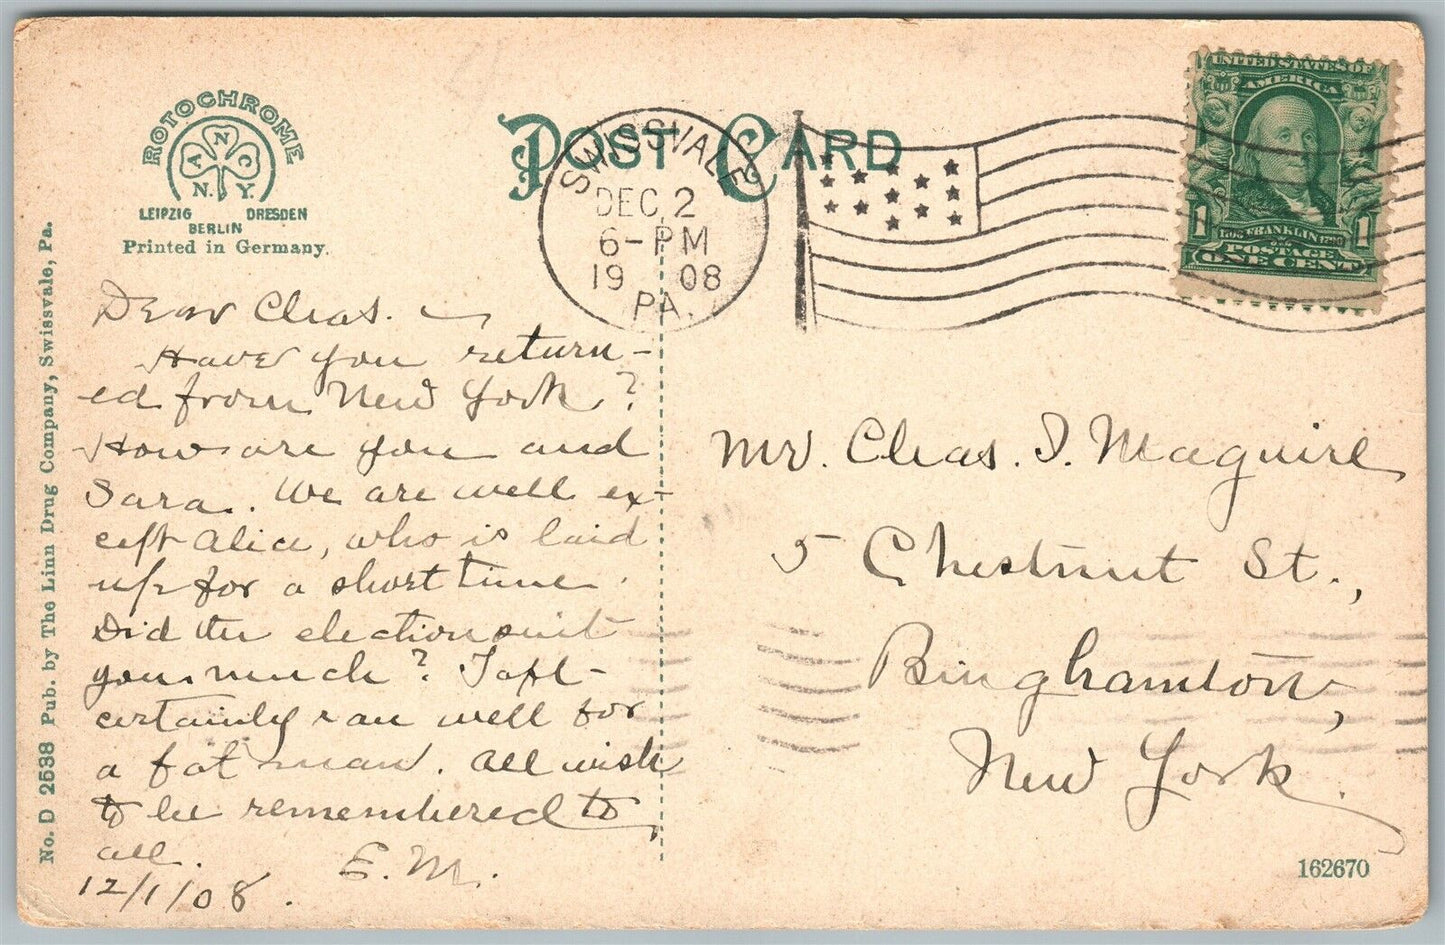 ROTOCHROME
A N C
N.Y.
LEIPZIG DRESDEN
BERLIN
Printed in Germany.
POST CARD
SWISSVALE
DEC 2
6-PM
1908
PA.
UNITED STATES OF
AMERICA
1 1
FRANKLIN
POSTAGE
ONE CENT
No. D 2538 Pub. by The Linn Drug Company, Swissvale, Pa.
Dear Chas. —
Have you return-
ed from New York?
How are you and
Sara. We are well ex-
cept Alice, who is laid
up for a short time.
Did the election suit
you much? Taft
certainly ran well for
a fat man. All wish
to be remembered to
all. E. M.
12/1/08.
Mr. Chas. I. Maguire
5 Chestnut St.,
Binghamton,
New York.
162670